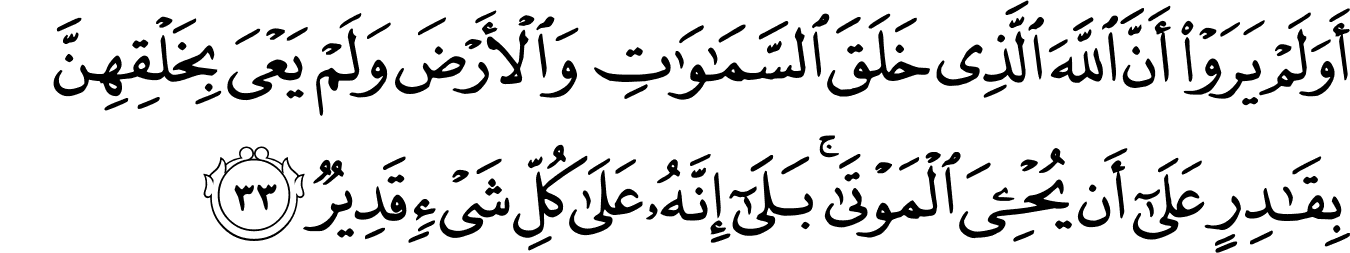 أَوَلَمْ يَرَوْا۟ أَنَّ ٱللَّهَ ٱلَّذِى خَلَقَ ٱلسَّمَـٰوَٰتِ وَٱلْأَرْضَ وَلَمْ يَعْىَ بِخَلْقِهِنَّ
بِقَـٰدِرٍ عَلَىٰٓ أَن يُحْـِۧىَ ٱلْمَوْتَىٰ ۚ بَلَىٰٓ إِنَّهُۥ عَلَىٰ كُلِّ شَىْءٍ قَدِيرٌ ٣٣